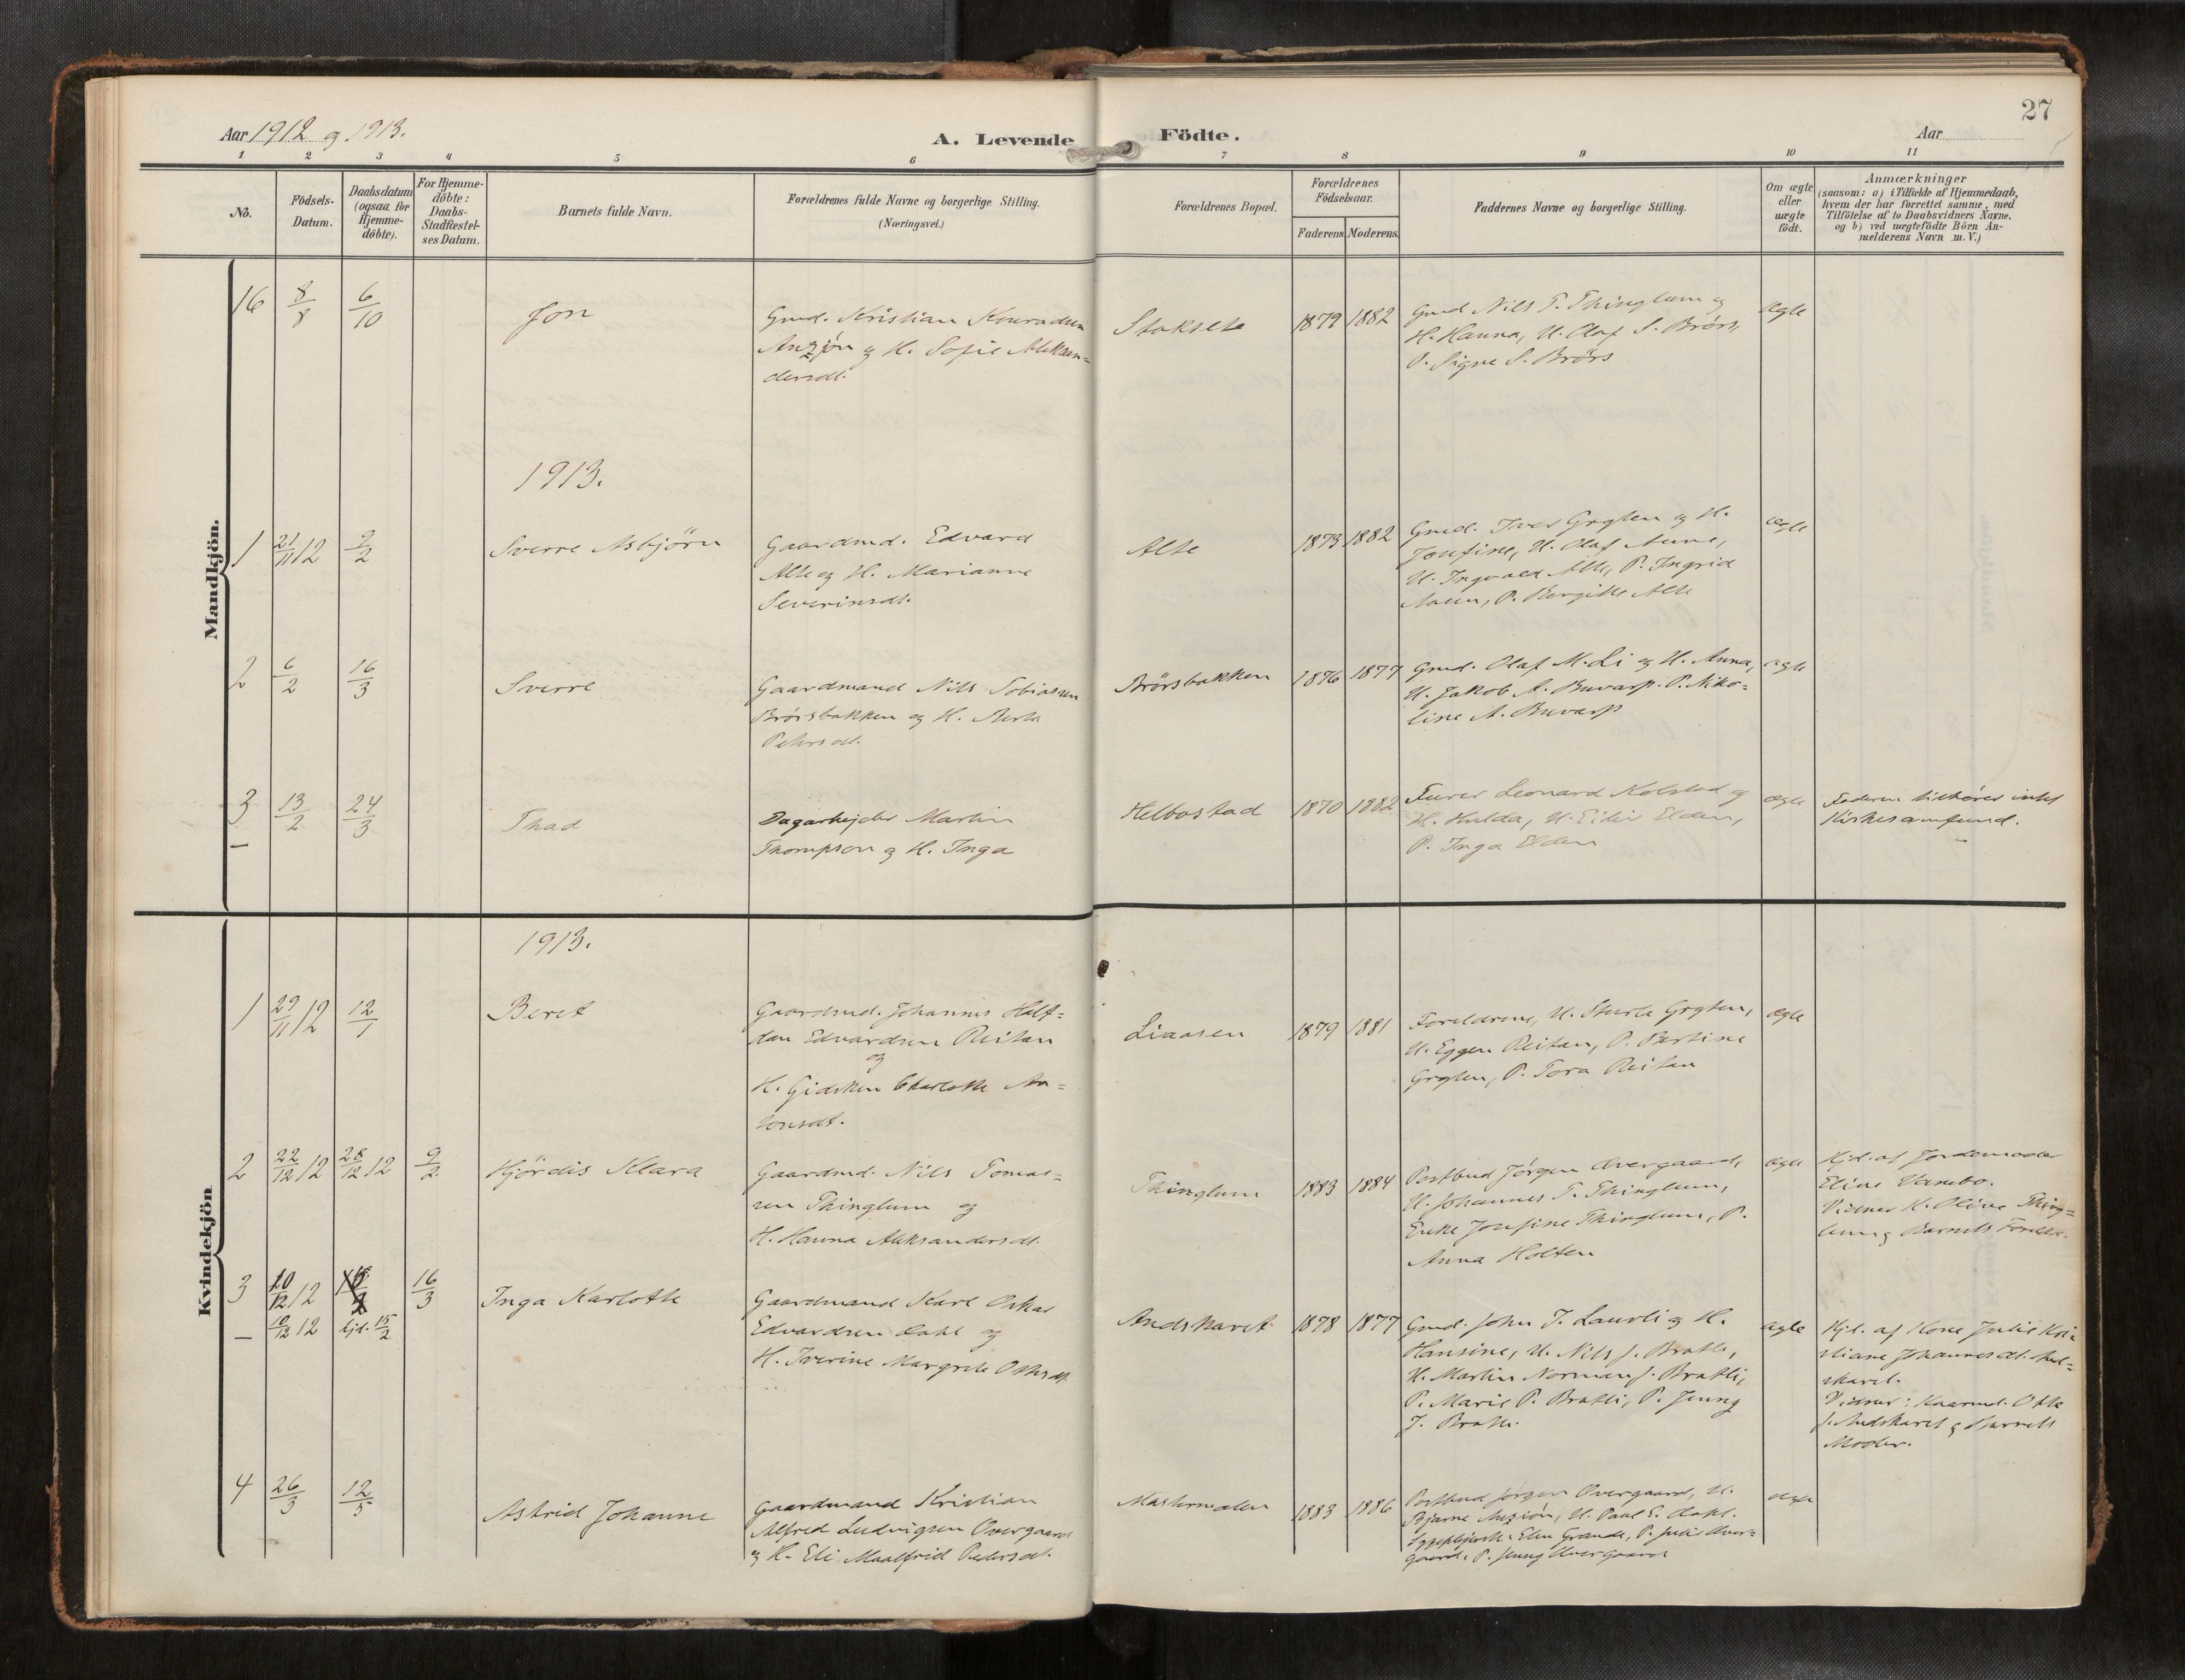 27
Aar 1912 og 1913.
A. Levende Födte.
Aar
1 2 3 4 5 6 7 8 9 10 11
No.
Födsels-
Datum.
Daabsdatum
(ogsaa for
Hjemme-
döbte).
For Hjemme-
döbte:
Daabs-
Stadfæstel-
ses Datum.
Barnets fulde Navn.
Forældrenes fulde Navne og borgerlige Stilling.
(Næringsvei.)
Forældrenes Bopæl.
Forældrenes
Födselsaar.
Faderens Moderens
Faddernes Navne og borgerlige Stilling.
Om ægte
eller
uægte
födt.
Anmærkninger
(saasom: a) i Tilfælde af Hjemmedaab,
hvem der har forrettet samme, med
Tilföielse af to Daabsvidners Navne.
og b) ved uægtefödte Börn An-
melderens Navn m. V.)
Mandkjön.
16 8/8 6/10 Jon
Gmd. Kristian Konradsen
Anzjön og H. Sofie Aleksan=
dersdt.
Stokselte 1879 1882
Gmd Nils T. Thinglum og
H. Hanna, U. Olaf S. Brörs,
P. Signe S. Brörs
ægte
1913.
1 21/11 12 9/2 Sverre Asbjörn
Gaardmd. Edvard
Alte og H. Marianne
Severinsdt.
Alte 1873 1882
Gmd. Iver Grøten og H.
Josefine, U. Olaf Aune,
U. Ingvald Alte, P. Ingrid
Aaen, P. Bergitte Alte
ægte
2 6/2 16/3 Sverre
Gaardmand Nils Tobiassen
Brörsbakken og H. Berta
Petersdt.
Brörsbakken 1876 1877
Gmd. Olaf M. Li og H. Anna,
U. Jakob A. Buvarp. P. Niko=
line A. Buvarp
ægte
3 13/2 24/3 Thad
Dagarbejder Martin
Thompson og H. Inga
Helbostad 1870 1882
Leonard Kolstad og
H. Hulda, U. Eiliv Elden,
P. Inga Elden
ægte
Faderen tilhører intet
Kirkesamfund.
Kvindekjön
1913.
1 29/11 12 12/1 Beret
Gaardmd. Johannes Half=
dan Edvardsen Reitan
og
H. Gidsken Charlotte An=
tonsdt.
Liaasen 1879 1881
Foreldrene, U. Sturla Grøten,
U. Eggen Reitan, P. Bertine
Grøten, P. Tora Reitan
ægte
2 22/12 12 28/12 12 9/2 Hjördis Klara
Gaardmd. Nils Tomas=
sen Thinglum og
H. Hanna Aleksandersdt.
Thinglum 1883 1884
Postbud Jörgen Overgaard,
U. Johannes T. Thinglum,
Enke Josefine Thinglum, P.
Anna Holten
ægte
Hjd. af Jordemoder
Eline Vambo.
Vidner K. Oline Thing=
lum og Barnets Foreldre.
3 10/12 12 16/3 Inga Karlotte
10/12 12 hjd. 15/2
Gaardmand Karl Oskar
Edvardsen Dahl og
H. Iverine Margrete Ottersdt.
Andskaret 1878 1877
Gmd. John J. Laurli og H.
Hansine, U. Nils J. Bratli,
U. Martin Norman J. Bratli,
P. Marie P. Bratli, P. Jenny
J. Bratli.
ægte
Hjd. af Kone Julie Kri=
stiane Johannesdt. And=
skaret.
Vidner: Kaarmd. Otte
J. Andskaret og Barnets
Moder.
4 26/3 12/5 Astrid Johanne
Gaardmand Kristian
Alfred Ludvigsen Overgaard
og H. Eli Maalfrid Pedersdt.
Mastermoelen 1883 1886
Postbud Jörgen Overgaard, U.
Bjarne Anzión, U. Paul E. Dahl.
Sygepleierske Elen Grande, P. Julie Over=
gaard, P. Jenny Overgaard
ægte